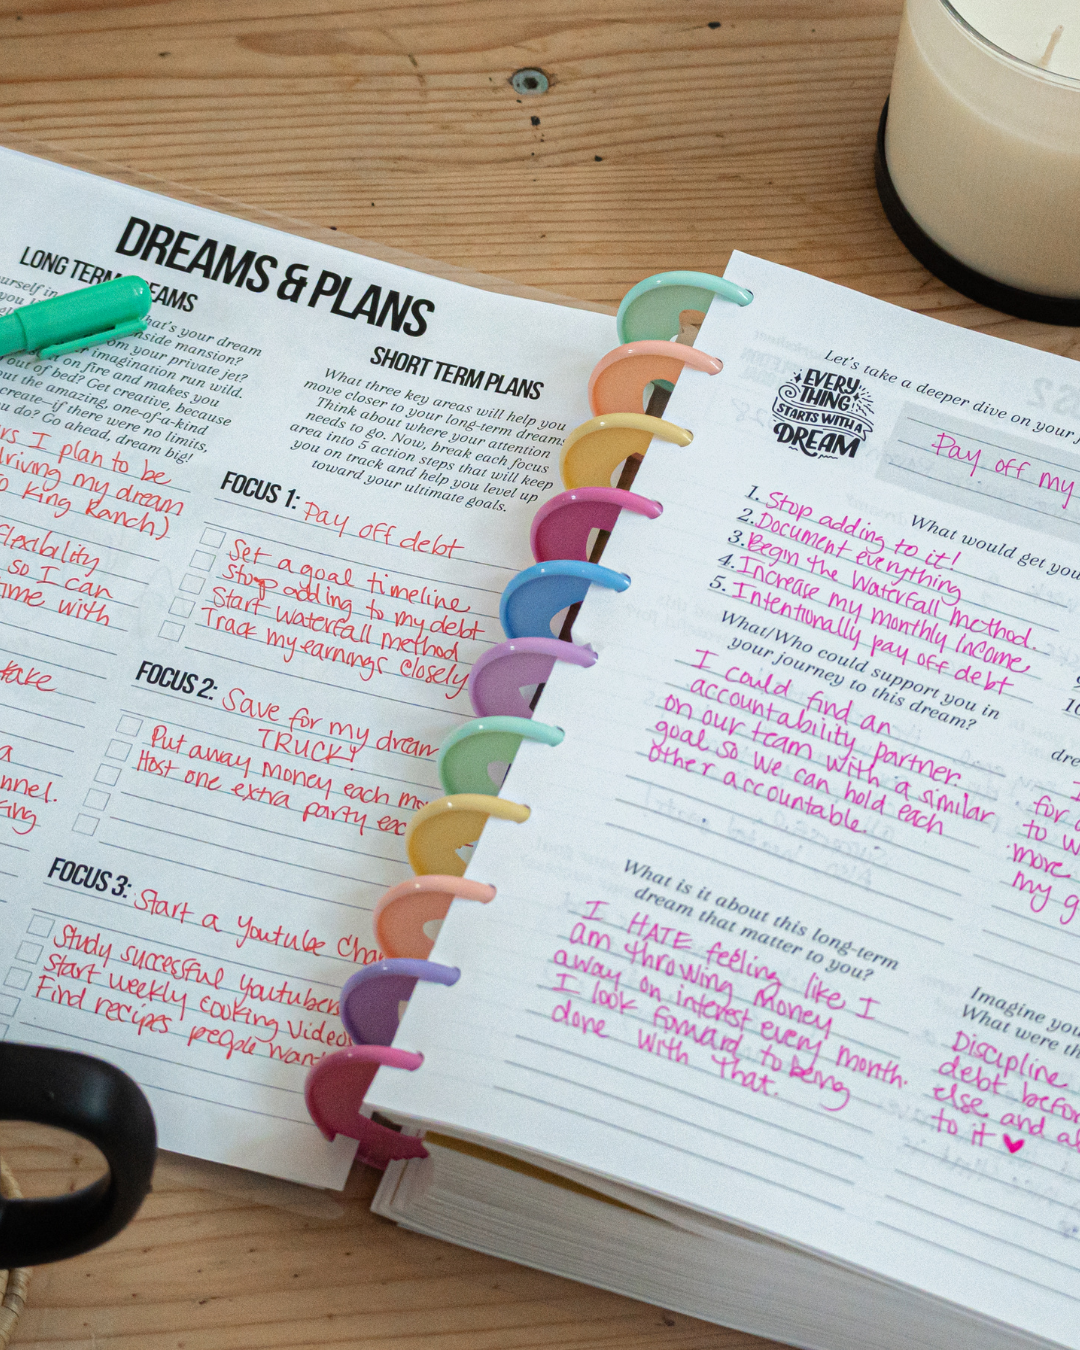 DREAMS & PLANS
LONG TERM DREAMS
What's your dream
mansion?
from your private jet?
imagination run wild.
on fire and makes you
out of bed? Get creative, because
the amazing, one-of-a-kind
create—if there were no limits,
you do? Go ahead, dream big!
I plan to be
driving my dream
King Ranch)
flexibility
so I can
time with
take
a
SHORT TERM PLANS
What three key areas will help you
move closer to your long-term dreams
Think about where your attention
needs to go. Now, break each focus
area into 5 action steps that will keep
you on track and help you level up
toward your ultimate goals.
FOCUS 1: Pay off debt
Set a goal timeline
Stop adding to my debt
Start waterfall method
Track my earnings closely
FOCUS 2: Save for my dream
TRUCK!
Put away money each
Host one extra party
FOCUS 3: Start a Youtube
Study successful youtubers
Start weekly cooking videos
Find recipes people want
Let's take a deeper dive on your
EVERY
THING
STARTS WITH A
DREAM
Pay off my
What would get you
1. Stop adding to it!
2. Document everything
3. Begin the Waterfall method.
4. Increase my monthly income
5. Intentionally pay off debt
What/Who could support you in
your journey to this dream?
I could find an
accountability partner.
on our team with a similar
goal so we can hold each
other accountable.
What is it about this long-term
dream that matter to you?
I HATE feeling like I
am throwing money
away on interest every month.
I look forward to being
done with that.
10
I
for a
to
more
my
Imagine you
What were
Discipline
debt
else and
to it ♥